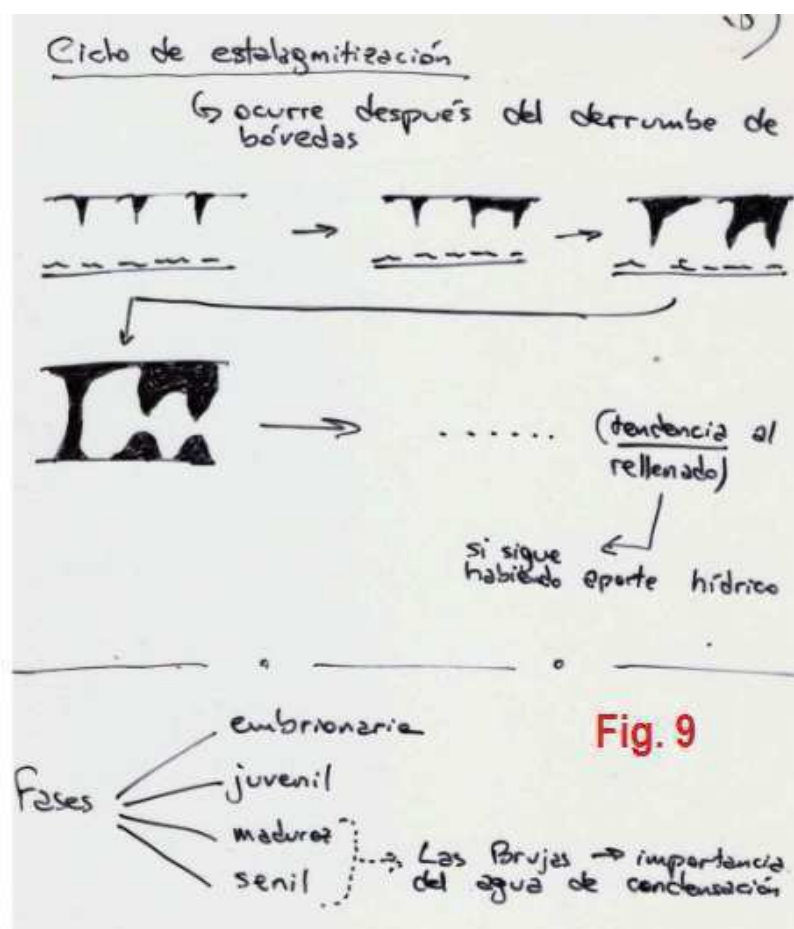 Ciclo de estalagmitización
↳ ocurre después del derrumbe de
bóvedas
(tendencia al
rellenado)
si sigue
habiendo aporte hídrico
Fig. 9
Fases
embrionaria
juvenil
madurez
senil
Las Brujas → importancia
del agua de condensación